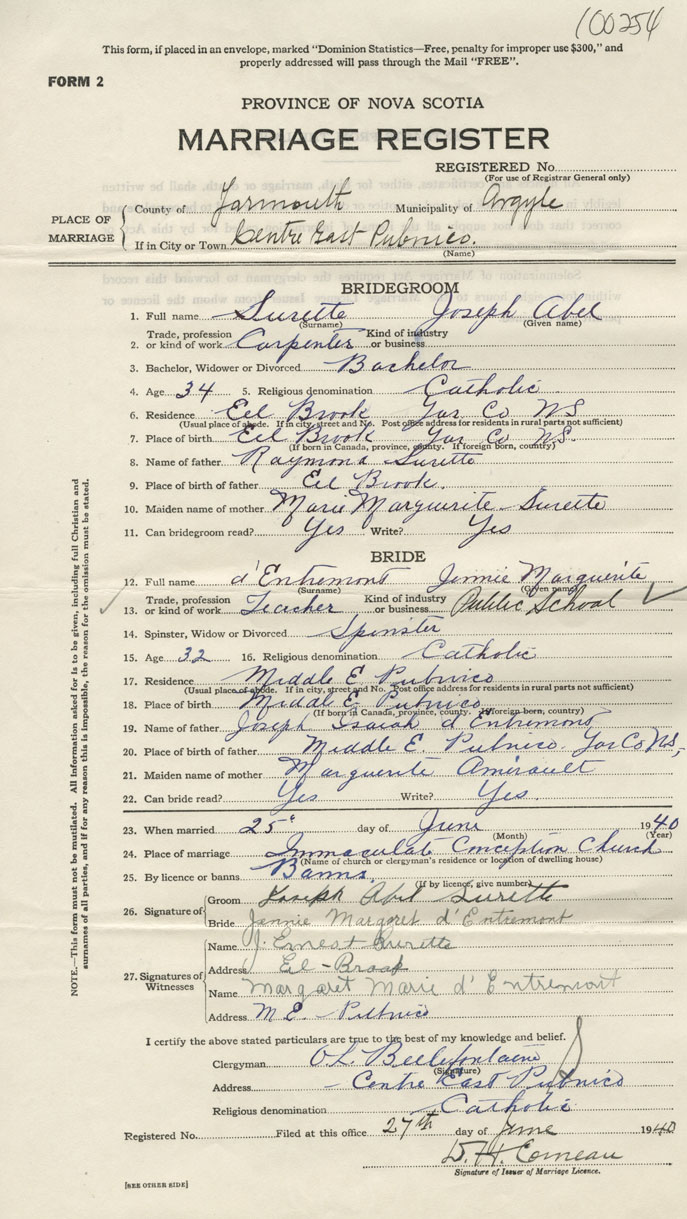 100254
This form, if placed in an envelope, marked "Dominion Statistics—Free, penalty for improper use $300," and
properly addressed will pass through the Mail "FREE".
FORM 2
PROVINCE OF NOVA SCOTIA
MARRIAGE REGISTER
REGISTERED No.
(For use of Registrar General only)
PLACE OF MARRIAGE
County of Yarmouth Municipality of Argyle
If in City or Town Centre East Pubnico.
(Name)
BRIDEGROOM
1. Full name Surette Joseph Abel
(Surname) (Given name)
2. Trade, profession or kind of work Carpenter Kind of industry or business
3. Bachelor, Widower or Divorced Bachelor
4. Age 34 5. Religious denomination Catholic
6. Residence Eel Brook Yar Co NS
(Usual place of abode. If in city, street and No. Post office address for residents in rural parts not sufficient)
7. Place of birth Eel Brook Yar Co NS.
(If born in Canada, province, county. If foreign born, country)
8. Name of father Raymond Surette
9. Place of birth of father Eel Brook.
10. Maiden name of mother Marie Marguerite Surette
11. Can bridegroom read? Yes Write? Yes
BRIDE
12. Full name d'Entremont Jennie Marguerite
(Surname) (Given name)
13. Trade, profession or kind of work Teacher Kind of industry or business Public School
14. Spinster, Widow or Divorced Spinster
15. Age 32 16. Religious denomination Catholic
17. Residence Middle E Pubnico
(Usual place of abode. If in city, street and No. Post office address for residents in rural parts not sufficient)
18. Place of birth Middl E Pubnico
(If born in Canada, province, county. If foreign born, country)
19. Name of father Joseph Isaiah d'Entremont
20. Place of birth of father Middle E. Pubnico Yar Co NS,
21. Maiden name of mother Marguerite Amirault
22. Can bride read? Yes Write? Yes.
23. When married 25" day of June 1940
(Month) (Year)
24. Place of marriage Immaculate Conception Church
(Name of church or clergyman's residence or location of dwelling house)
25. By licence or banns Banns.
(If by licence, give number)
26. Signature of Groom Joseph Abel Surette
Bride Jennie Margaret d'Entremont
27. Signatures of Witnesses
Name J. Ernest Surette
Address Eel-Brook
Name Margaret Marie d'Entremont
Address M E - Pubnico
I certify the above stated particulars are true to the best of my knowledge and belief.
Clergyman Bellefontaine
(Signature)
Address - Centre East Pubnico
Religious denomination Catholic
Registered No. Filed at this office 27th day of June 1940
D. H. Comeau
Signature of Issuer of Marriage Licence.
[SEE OTHER SIDE]
NOTE.—This form must not be mutilated. All information asked for is to be given, including full Christian and
surnames of all parties, and if for any reason this is impossible, the reason for the omission must be stated.